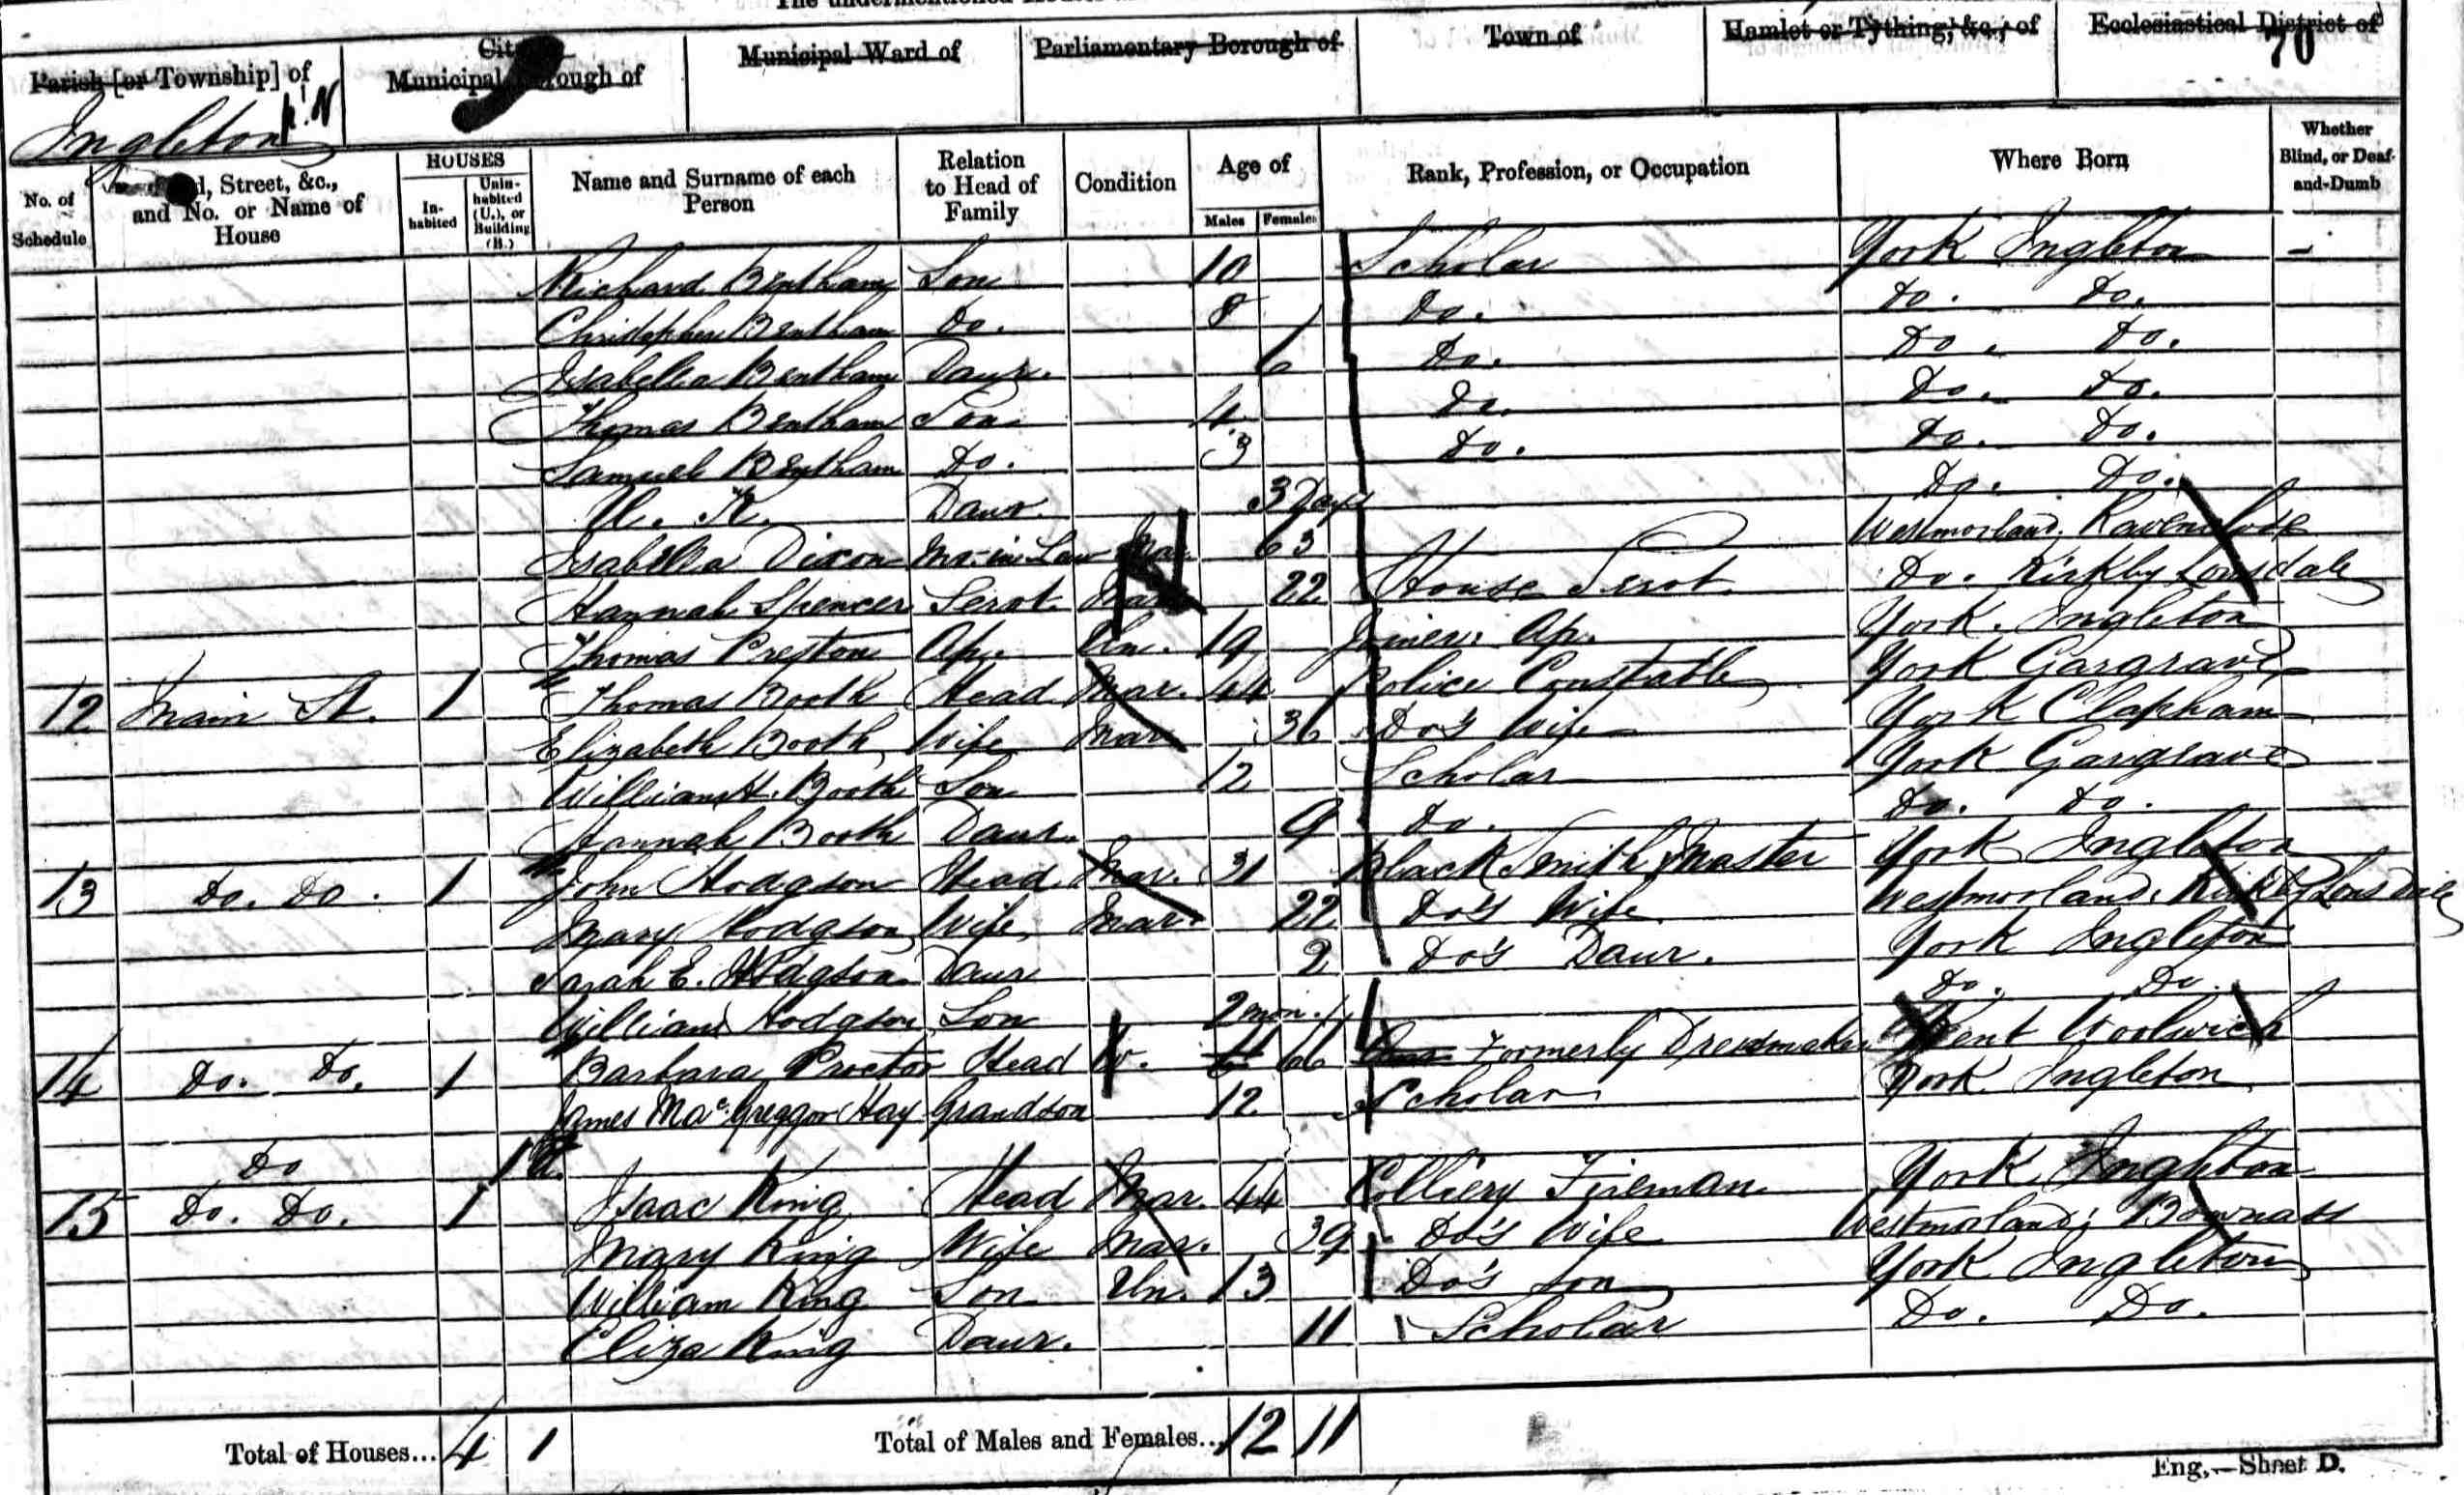 Parish [or Township] of
Ingleton
City or
Municipal Borough of
Municipal Ward of
Parliamentary Borough of
Town of
Hamlet or Tything, &c., of
Ecclesiastical District of
70
No. of Schedule
Street, &c., and No. or Name of House
HOUSES
In-habited
Unin-habited (U.), or Building (B.)
Name and Surname of each Person
Relation to Head of Family
Condition
Age of
Males Females
Rank, Profession, or Occupation
Where Born
Whether Blind, or Deaf-and-Dumb
Richard Bentham Son 10 Scholar York Ingleton -
Christopher Bentham Do. 8 Do. Do. Do.
Isabella Bentham Daur. 6 Do. Do. Do.
Thomas Bentham Son 4 Do. Do. Do.
Samuel Bentham Do. 3 Do. Do. Do.
N. K. Daur. 3 Days Do. Do.
Isabella Dixon Mo-in Law Mar. 63 Westmorland.
Hannah Spencer Servt. 22 House Servt. Do. Kirkby Lonsdale
Thomas Preston Ap. Un. 19 Joiner. Ap. York. Ingleton
12 Main St. 1 Thomas Booth Head Mar. 44 Police Constable York Gargrave
Elizabeth Booth Wife Mar 36 Do's Wife York Clapham
William H. Booth Son 12 Scholar York Gargrave
Hannah Booth Daur. 9 Do. Do. Do.
13 Do. Do. 1 John Hodgson Head Mar. 31 Black Smith Master York Ingleton
Mary Hodgson Wife Mar. 22 Do's Wife Westmorland. Kirkby Lonsdale
Sarah E. Hodgson Daur 2 Do's Daur. York Ingleton
William Hodgson Son 2 mon. Do. Do.
14 Do. Do. 1 Barbara Proctor Head W. 66 Formerly Dressmaker Kent Woolwich
James Mac. Greggor Hay Grandson 12 Scholar York. Ingleton
Do 1 U.
15 Do. Do. 1 Isaac King Head Mar. 44 Colliery Fireman York. Ingleton
Mary King Wife Mar. 39 Do's Wife Westmorland; Bownass
William King Son Un. 13 Do's Son York Ingleton
Eliza King Daur. 11 Scholar Do. Do.
Total of Houses... 4 1
Total of Males and Females... 12 11
Eng.—Sheet D.